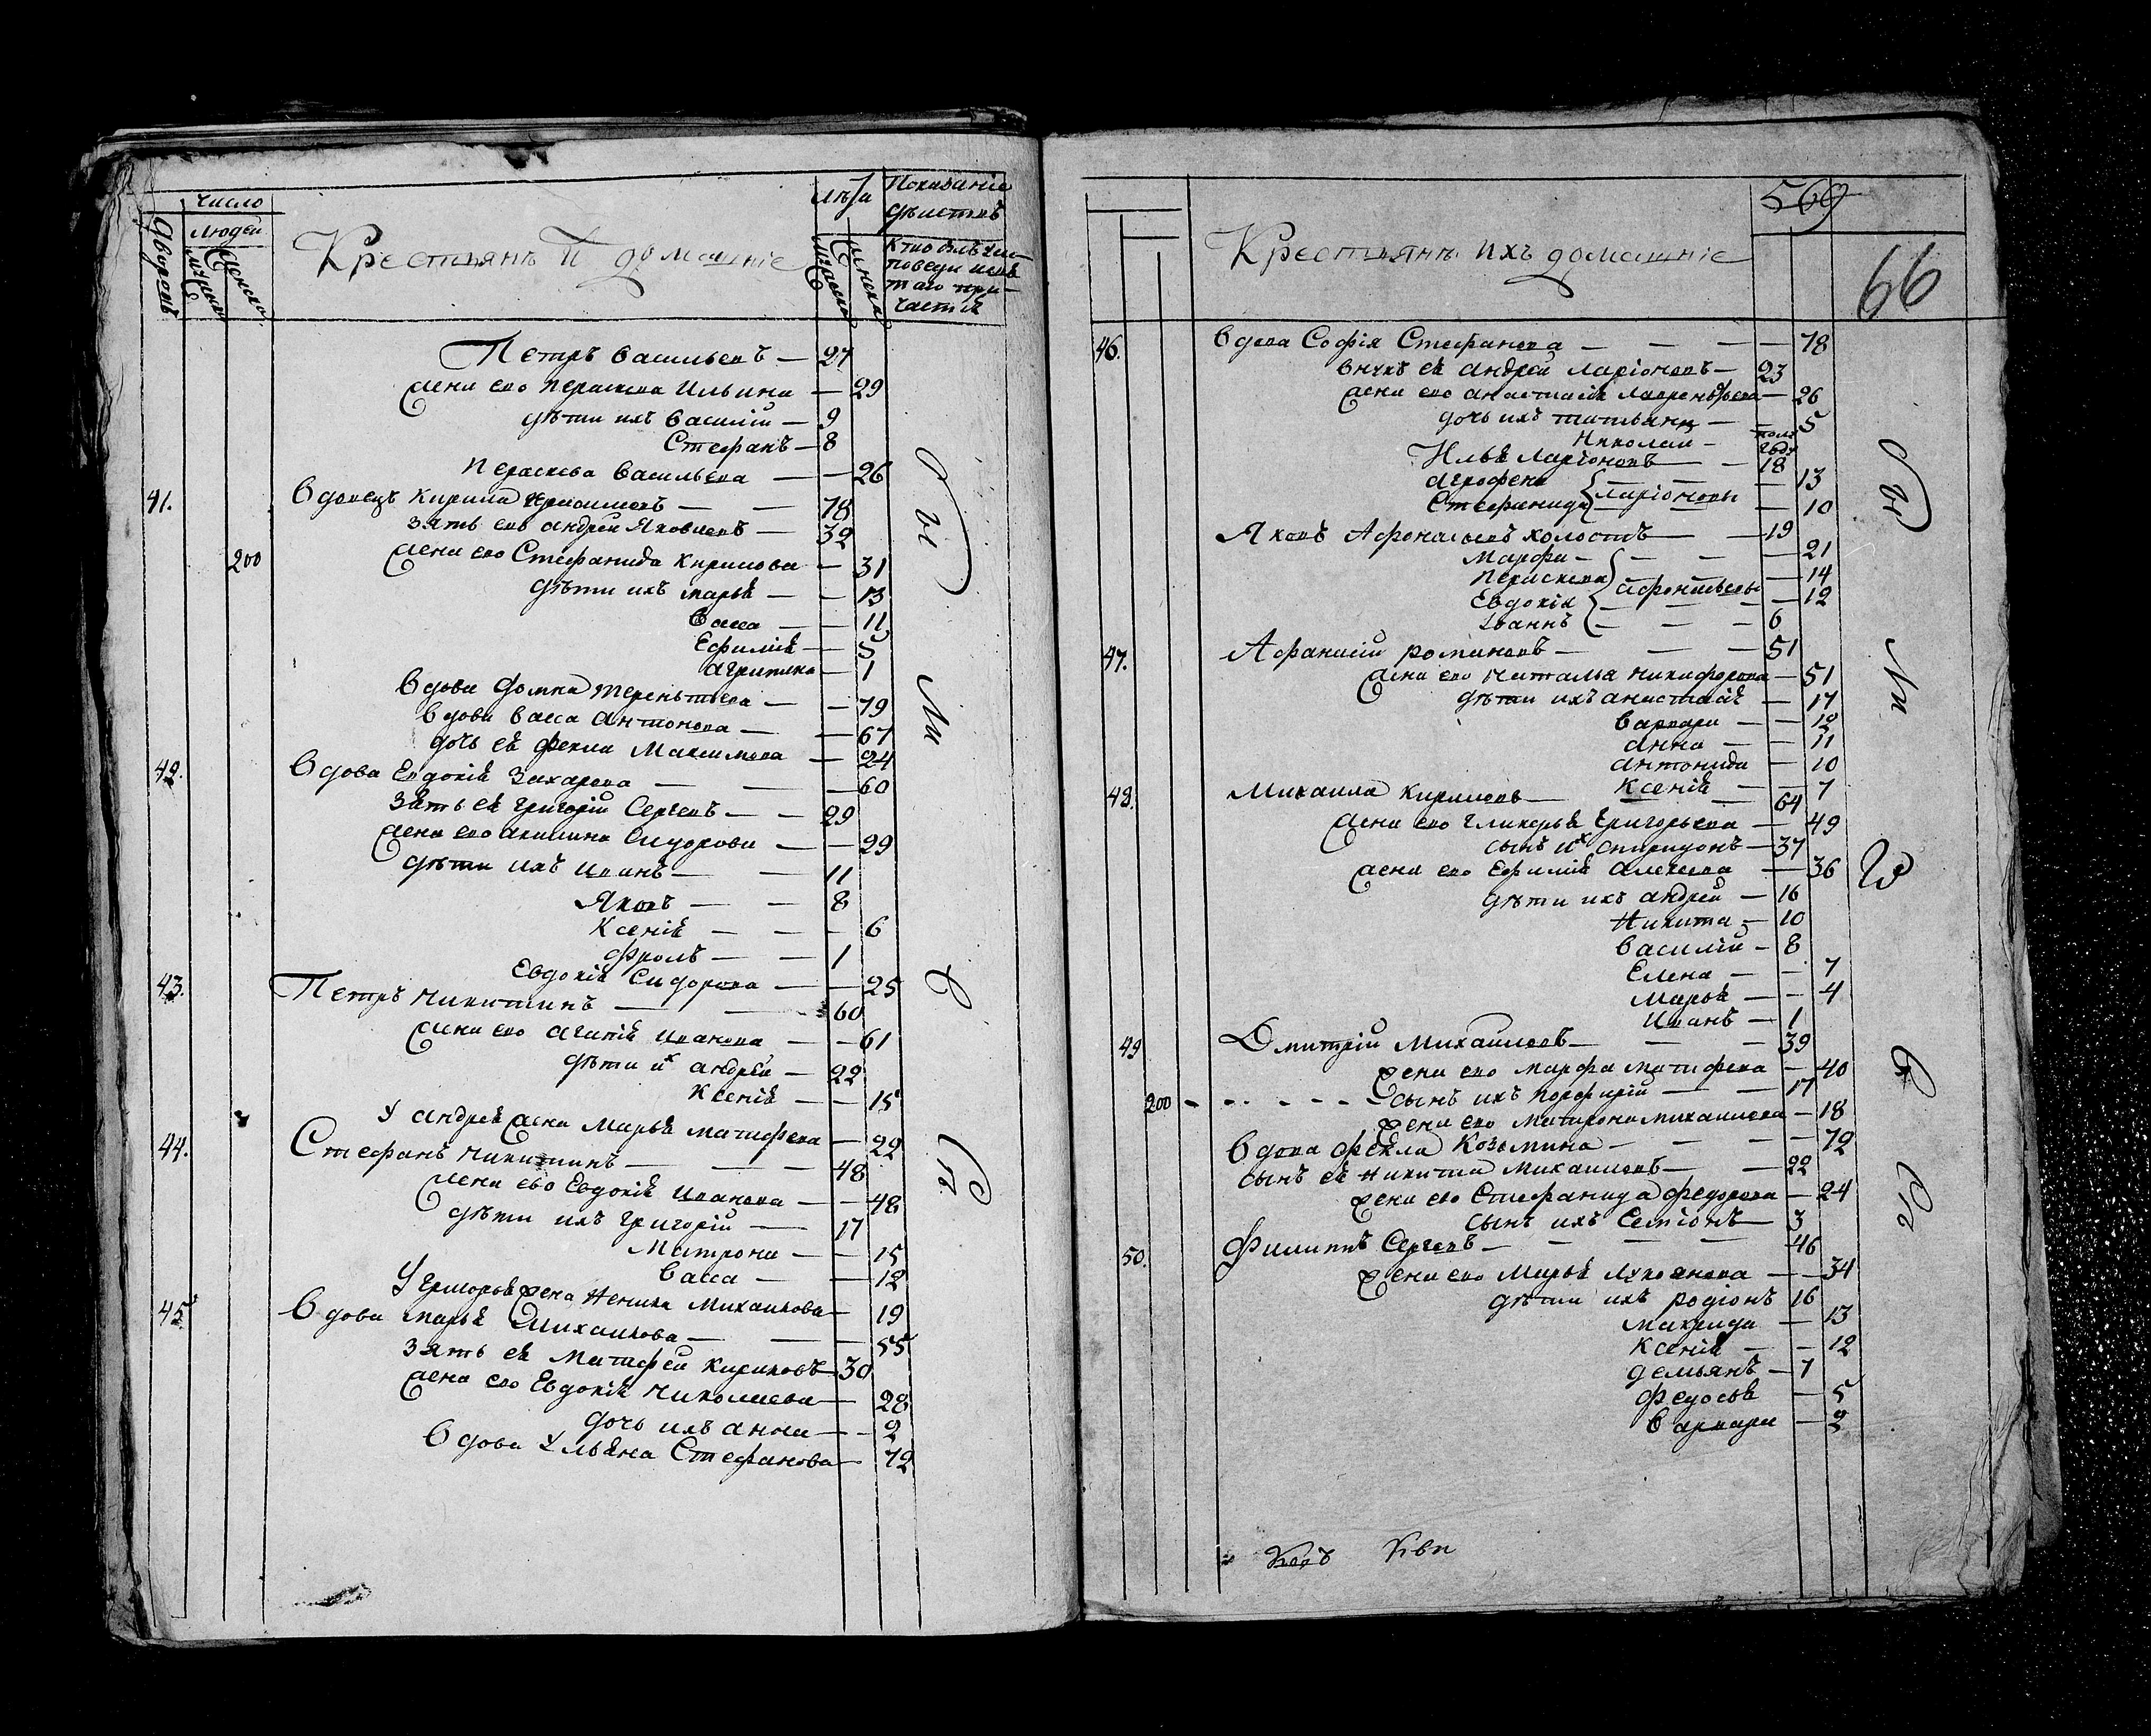 Число
Людей
Дворовъ
мужска
женска
Крестьянъ И домашніе
лѣта
мужска
женска
Показаніе
дѣйствъ
Кто былъ ис-
поведи и свя
таго при-
частія
Петръ Васильевъ — 27
жена ево Параскева Ильина — 29
дѣти ихъ Василій — 9
Стефанъ — 8
Параскева Васильева — 26
41. Вдовецъ Кирила — 78
зять ево андрей Яковлевъ — 32
200 жена ево Стефанида Кирилова — 31
дѣти ихъ марья — 13
Васса — 11
Ефимія — 5
агрипина — 1
Вдова Домна Терентьева — 79
Вдова Васса Антонова — 67
дочь ея Фекла Максимова — 24
42. Вдова Евдокія Захарова — 60
Зять ея григорій Сергеевъ — 29
жена ево акилина Сидорова — 29
дѣти ихъ иванъ — 11
Яковъ — 8
Ксенія — 6
Фролъ — 1
Евдокія Сидорова — 25
43. Петръ Никитинъ — 60
жена ево агапія иванова — 61
дѣти их андрей — 22
Ксенія — 15
У андрея жена Марья матфеева — 22
44. Стефанъ никитинъ — 48
жена ево Евдокія иванова — 48
дѣти ихъ григорій — 17
Матрона — 15
Васса — 12
У григорья жена Ненила Михаилова — 19
45. Вдова марья Михаилова — 55
Зять ея Матфей Кириловъ — 30
жена ево Евдокія николаева — 28
дочь ихъ анна — 2
Вдова Ульяна Стефанова — 72
Бы
ли
с
ія
569
66
Крестьянъ ихъ домашніе
46. Вдова Софія Стефанова — 78
внукъ ея андрей ларіоновъ — 23
жена ево анастасія лаврентьева — 26
дочь ихъ татьяна — 5
Николай — полъ году
Илья Ларіоновъ — 18
агрофена — 13
Стефанида — 10
ларіоновы
Яковъ Афонасьевъ холостъ — 19
Марфа — 21
Параскева — 14
Евдокія — 12
Іоаннъ — 6
афонасьевы
47. Афанасій романовъ — 51
жена ево Наталья никифорова — 51
дѣти ихъ анастасія — 17
Варвара — 12
анна — 11
антонида — 10
Ксенія — 7
48. Михаила Кириловъ — 64
жена ево гликерья григорьева — 49
сынъ их спиридонъ — 37
жена ево Ефимія алексеева — 36
дѣти ихъ андрей — 16
Никита — 10
Василій — 8
Елена — 7
Марья — 4
иванъ — 1
49 Дмитрій Михаиловъ — 39
жена ево марфа матфеева — 40
200 сынъ ихъ порфирій — 17
жена ево матрона михаилова — 18
Вдова Фекла Козьмина — 72
сынъ ея Никита Михаиловъ — 22
жена ево Стефанида Федорова — 24
сынъ ихъ Семіонъ — 3
50. Филиппъ Сергеевъ — 46
жена ево Марья Лукоянова — 34
дѣти ихъ родіонъ 16
макрида — 13
Ксенія — 12
демьянъ — 7
Федосья — 5
Варвара — 2
Бы
ли